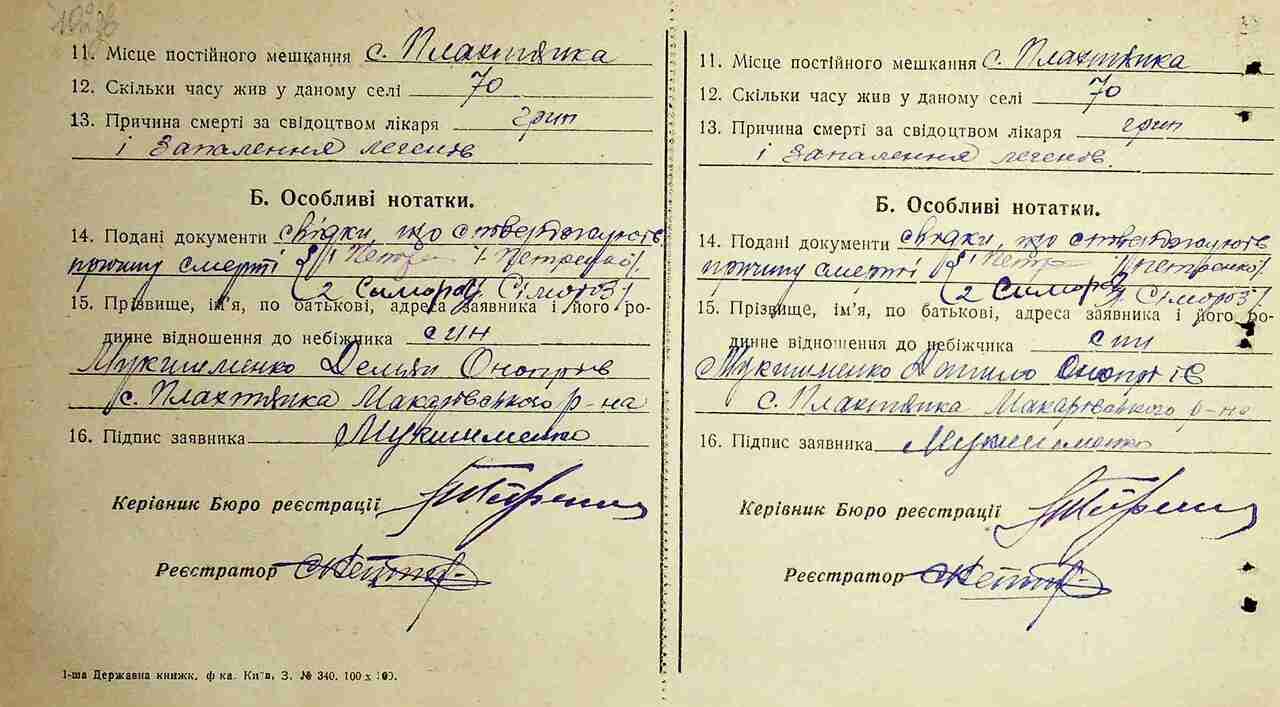 11. Місце постійного мешкання с. Плахтянка
12. Скільки часу жив у даному селі 70
13. Причина смерті за свідоцтвом лікаря грип
і Запалення легенів
Б. Особливі нотатки.
14. Подані документи свідки, що стверджують
причину смерті 1 Петре / Петренко/
2 Симороз /Сімороз/
15. Прізвище, ім’я, по батькові, адреса заявника і його ро-
динне відношення до небіжчика син
Мукшименко Оноприїв
с. Плахтянка Макарівського р-на
16. Підпис заявника Мукшименко
Керівник Бюро реєстрації
Реєстратор
1-ша Державна книжк. ф-ка. Київ, З. № 340. 100 х 100.
11. Місце постійного мешкання с. Плахтянка
12. Скільки часу жив у даному селі 70
13. Причина смерті за свідоцтвом лікаря грип
і Запалення легенів.
Б. Особливі нотатки.
14. Подані документи свідки, що стверджують
причину смерті 1 Петре /Петренко/
2 Симороз /Сімороз/
15. Прізвище, ім’я, по батькові, адреса заявника і його ро-
динне відношення до небіжчика син
Мукшименко Данило Оноприїв
с. Плахтянка Макарівського р-на
16. Підпис заявника Мукшименко
Керівник Бюро реєстрації
Реєстратор